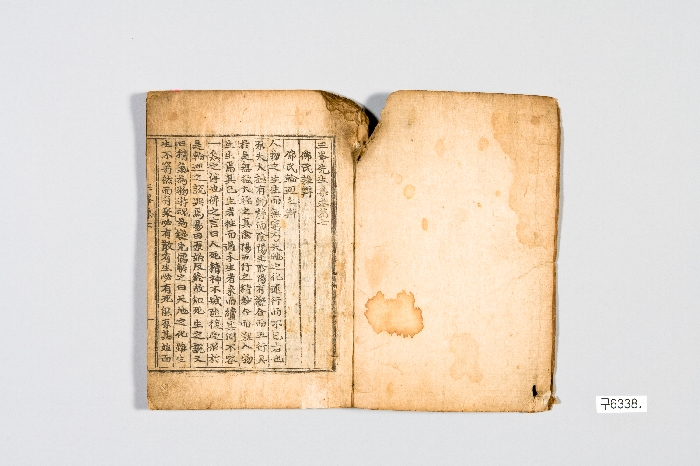 三峯先生集卷之七
佛氏雜辨
佛氏輪廻之辨
人物之生生而無窮乃天地之化運行而不已者也
原夫太極有動靜而陰陽生陰陽有變合而五行具
於是無極太極之眞陰陽五行之精妙合而凝人物
生生焉其已生者往而過未生者來而續其間不容
一息之停也佛之言曰人死精神不滅隨復受形於
是輪廻之說興焉易曰原始反終故知死生之說又
曰精氣爲物游魂爲變先儒解之曰天地之化雖生
生不窮然而有聚必有散有生必有死能原其始而
구6338.